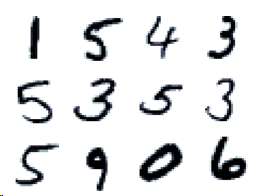 1 5 4 3
5 3 5 3
5 9 0 6